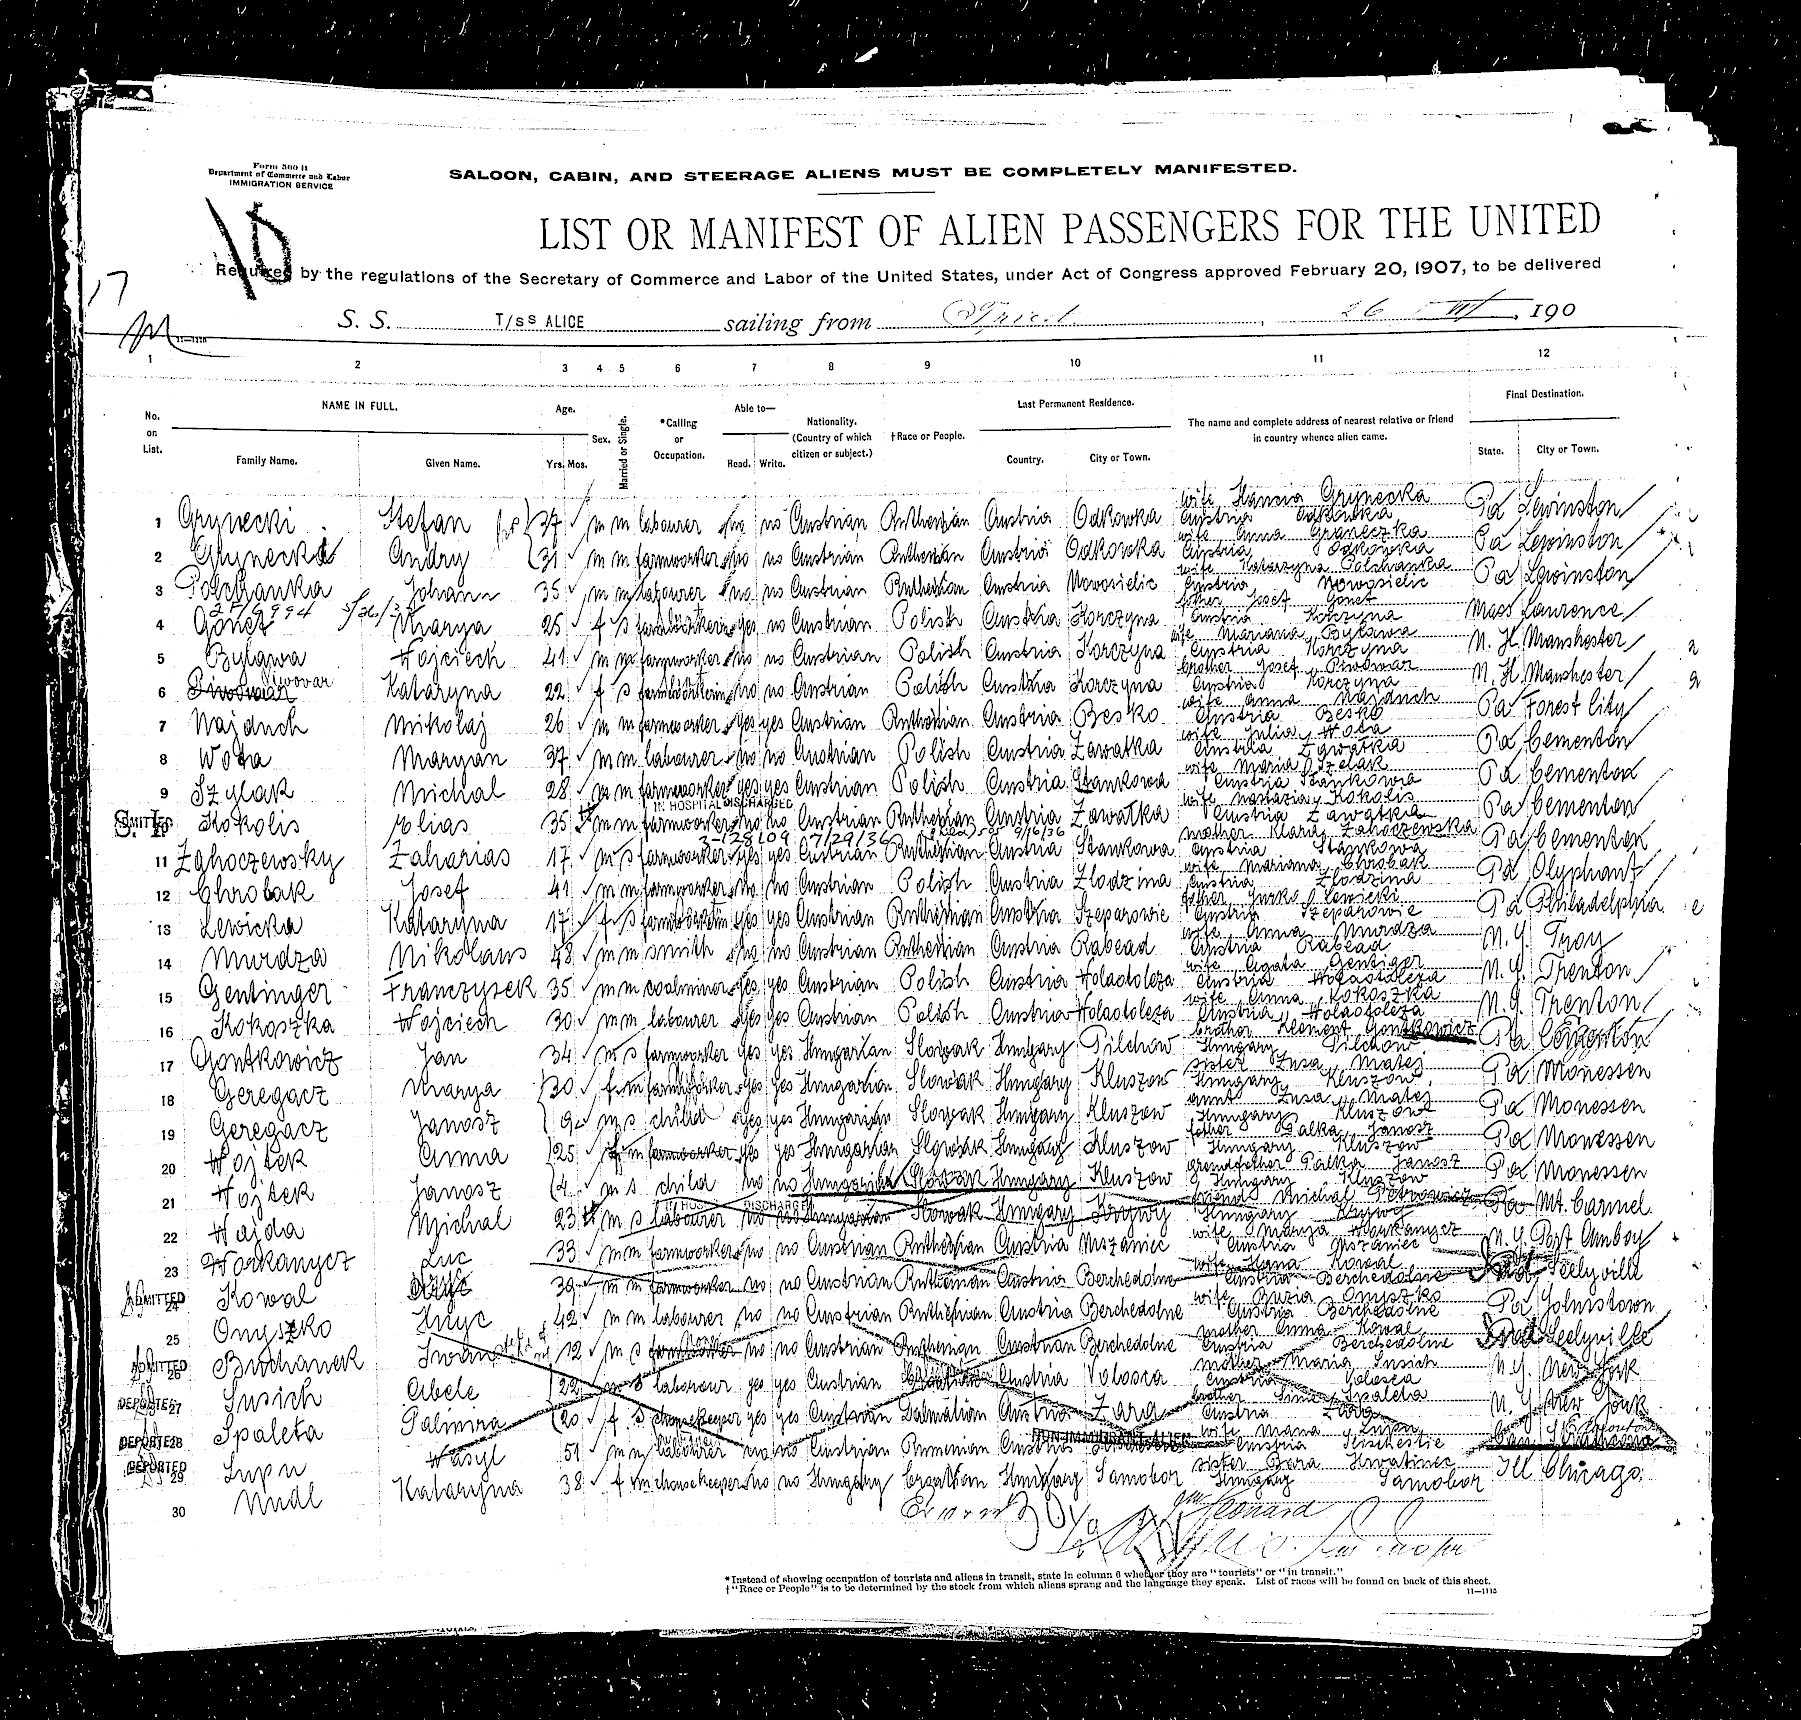 Form 500 B
Department of Commerce and Labor
IMMIGRATION SERVICE
SALOON, CABIN, AND STEERAGE ALIENS MUST BE COMPLETELY MANIFESTED.
10
LIST OR MANIFEST OF ALIEN PASSENGERS FOR THE UNITED
Required by the regulations of the Secretary of Commerce and Labor of the United States, under Act of Congress approved February 20, 1907, to be delivered
17
S. S. T/SS ALICE sailing from Triest, 26 190
1 2 3 4 5 6 7 8 9 10 11 12
No. on List. NAME IN FULL. Family Name. Given Name. Age. Yrs. Mos. Sex. Married or Single. *Calling or Occupation. Able to— Read. Write. Nationality. (Country of which citizen or subject.) †Race or People. Last Permanent Residence. Country. City or Town. The name and complete address of nearest relative or friend in country whence alien came. Final Destination. State. City or Town.
1 Grynecki Stefan 37 m m labourer no no Austrian Ruthenian Austria Odkowka wife Grynecka Austria Odkowka Pa Lewinston
2 Grynecki Andry 31 m m farmworker no no Austrian Ruthenian Austria Odkowka wife Anna Austria Odkowka Pa Lewinston
3 Johann 35 m m labourer no no Austrian Ruthenian Austria Nowosielic wife Katarzyna Austria Nowosielic Pa Lewinston
4 Gonet Marya 25 f s yes no Austrian Polish Austria Korczyna father Josef Gonet Austria Korczyna Mass Laurence
5 Bylawa Wojciech 41 m m farmworker no no Austrian Polish Austria Korczyna wife Mariana Bylawa Austria Korczyna N. H. Manshester
6 Piwowar Kataryna 22 f s no no Austrian Polish Austria Korczyna brother Josef Piwowar Austria Korczyna N. H. Manshester
7 Najduch Mikolaj 26 m m farmworker yes yes Austrian Ruthenian Austria Besko wife Anna Najduch Austria Besko Pa Forest City
8 Wota Maryan 37 m m labourer no no Austrian Polish Austria Zawatka wife Julia Wota Austria Zawatka Pa Cementon
9 Szylak Michal 28 m m farmworker yes yes Austrian Polish Austria Stankowa wife Maria Szelak Austria Stankowa Pa Cementon
IN HOSPITAL DISCHARGED
ADMITTED S. I. 10 Kokolis Elias 35 m m farmworker no no Austrian Ruthenian Austria Zawatka wife Kokolis Austria Zawatka Pa Cementon
3-128109 7/29/36 9/16/36
11 Zahoczewsky Zaharias 17 m s farmworker yes yes Austrian Ruthenian Austria Stankowa mother Klara Zahoczewska Austria Stankowa Pa Cementon
12 Chrobak Josef 41 m m farmworker no no Austrian Polish Austria Zlodzina wife Mariana Chrobak Austria Zlodzina Pa Olyphant
13 Lewicka Kataryna 17 f s yes yes Austrian Ruthenian Austria Szeparowie father Lewicki Austria Szeparowie Pa Philadelphia
14 Murdza Nikolaus 48 m m smith no no Austrian Ruthenian Austria Rabead wife Anna Murdza Austria Rabead N. Y. Troy
15 Gentinger Franczysek 35 m m coalminer yes yes Austrian Polish Austria Holaotoleza wife Agata Gentiger Austria Holaotoleza N. Y. Trenton
16 Kokoszka Wojciech 30 m m labourer yes yes Austrian Polish Austria Holaotoleza wife Anna Kokoszka Austria Holaotoleza N. Y. Trenton
17 Gontkowicz Jan 34 m s farmworker yes yes Hungarian Slowak Hungary Pilchow brother Klement Gontkowicz Hungary Pilchow Pa
18 Geregacz Marya 30 f m farmworker yes yes Hungarian Slowak Hungary Kluszow sister Zusa Matej Hungary Kluszow Pa Monessen
19 Geregacz Janosz 9 m s child yes yes Hungarian Slowak Hungary Kluszow aunt Zusa Matej Hungary Kluszow Pa Monessen
20 Wojtek Anna 25 f m farmworker yes yes Hungarian Slowak Hungary Kluszow father Palka Janosz Hungary Kluszow Pa Monessen
21 Wojtek Janosz 4 m s child no no Hungarian Slowak Hungary Kluszow grandfather Palka Janosz Hungary Kluszow Pa Monessen
DISCHARGED
22 Wajda Michal 23 m s labourer no no Hungarian Slowak Hungary Krywy friend Michal Petrowicz Hungary Krywy Pa Mt. Carmel
23 Workanycz Luc 33 m m farmworker no no Austrian Ruthenian Austria Mszaniec wife Marya Workanycz Austria Mszaniec N. Y. Port Amboy
ADMITTED 24 Kowal 39 m m farmworker no no Austrian Ruthenian Austria Berchedolne wife Hana Kowal Austria Berchedolne Seelyville
25 Onyszko Hnyc 42 m m labourer no no Austrian Ruthenian Austria Berchedolne wife Onyszko Austria Berchedolne Pa Johnstown
ADMITTED 26 Buchanek Iwan 12 m s no no Austrian Ruthenian Austrian Berchedolne mother Anna Kowal Austria Berchedolne Seelyville
DEPORTED 27 Susich Abele 22 m s labourer yes yes Austrian Austria Volosca mother Maria Susich Austria Volosca N. Y. New York
DEPORTED 28 Spaleta Palmira 20 f s housekeeper yes yes Austrian Dalmatian Austria Zara brother Sime Spaleta Austria Zara N. Y. New York
NON IMMIGRANT ALIEN
DEPORTED 29 Lupu Wasyl 51 m m labourer no no Austrian Rumenian Austria wife Maria Lupu Austria
30 Mudl Kataryna 38 f m housekeeper no no Hungary Croatian Hungary Samobor sister Bara Hwatinec Hungary Samobor Ill Chicago
Leonard
*Instead of showing occupation of tourists and aliens in transit, state in column 6 whether they are "tourists" or "in transit."
†"Race or People" is to be determined by the stock from which aliens sprang and the language they speak. List of races will be found on back of this sheet.
11—1113